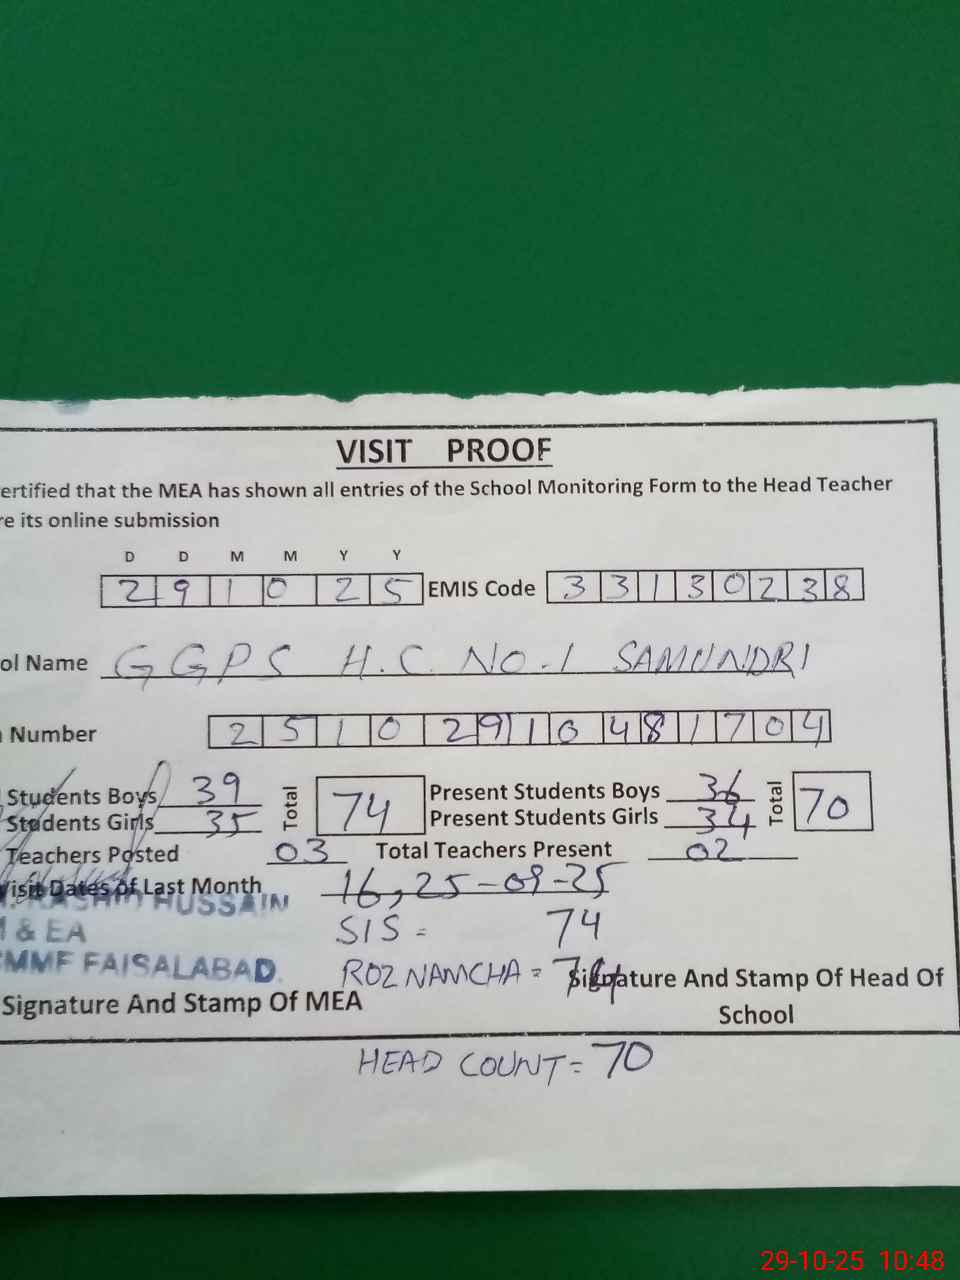 VISIT PROOF
ertified that the MEA has shown all entries of the School Monitoring Form to the Head Teacher
re its online submission
D D M M Y Y
2 9 1 0 2 5 EMIS Code 3 3 1 3 0 2 3 8
ol Name GGPS H.C. NO.1 SAMUNDRI
Number 2 5 1 0 2 9 1 0 4 8 1 7 0 4
Students Boys 39 Total 74 Present Students Boys 36 Total 70
Students Girls 35 Present Students Girls 34
Teachers Posted 03 Total Teachers Present 02
Visit Dates of Last Month 16, 25-09-25
RASHID HUSSAIN SIS = 74
M & EA
CMMF FAISALABAD. ROZ NAMCHA = 74 Signature And Stamp Of Head Of
Signature And Stamp Of MEA School
HEAD COUNT = 70
29-10-25 10:48